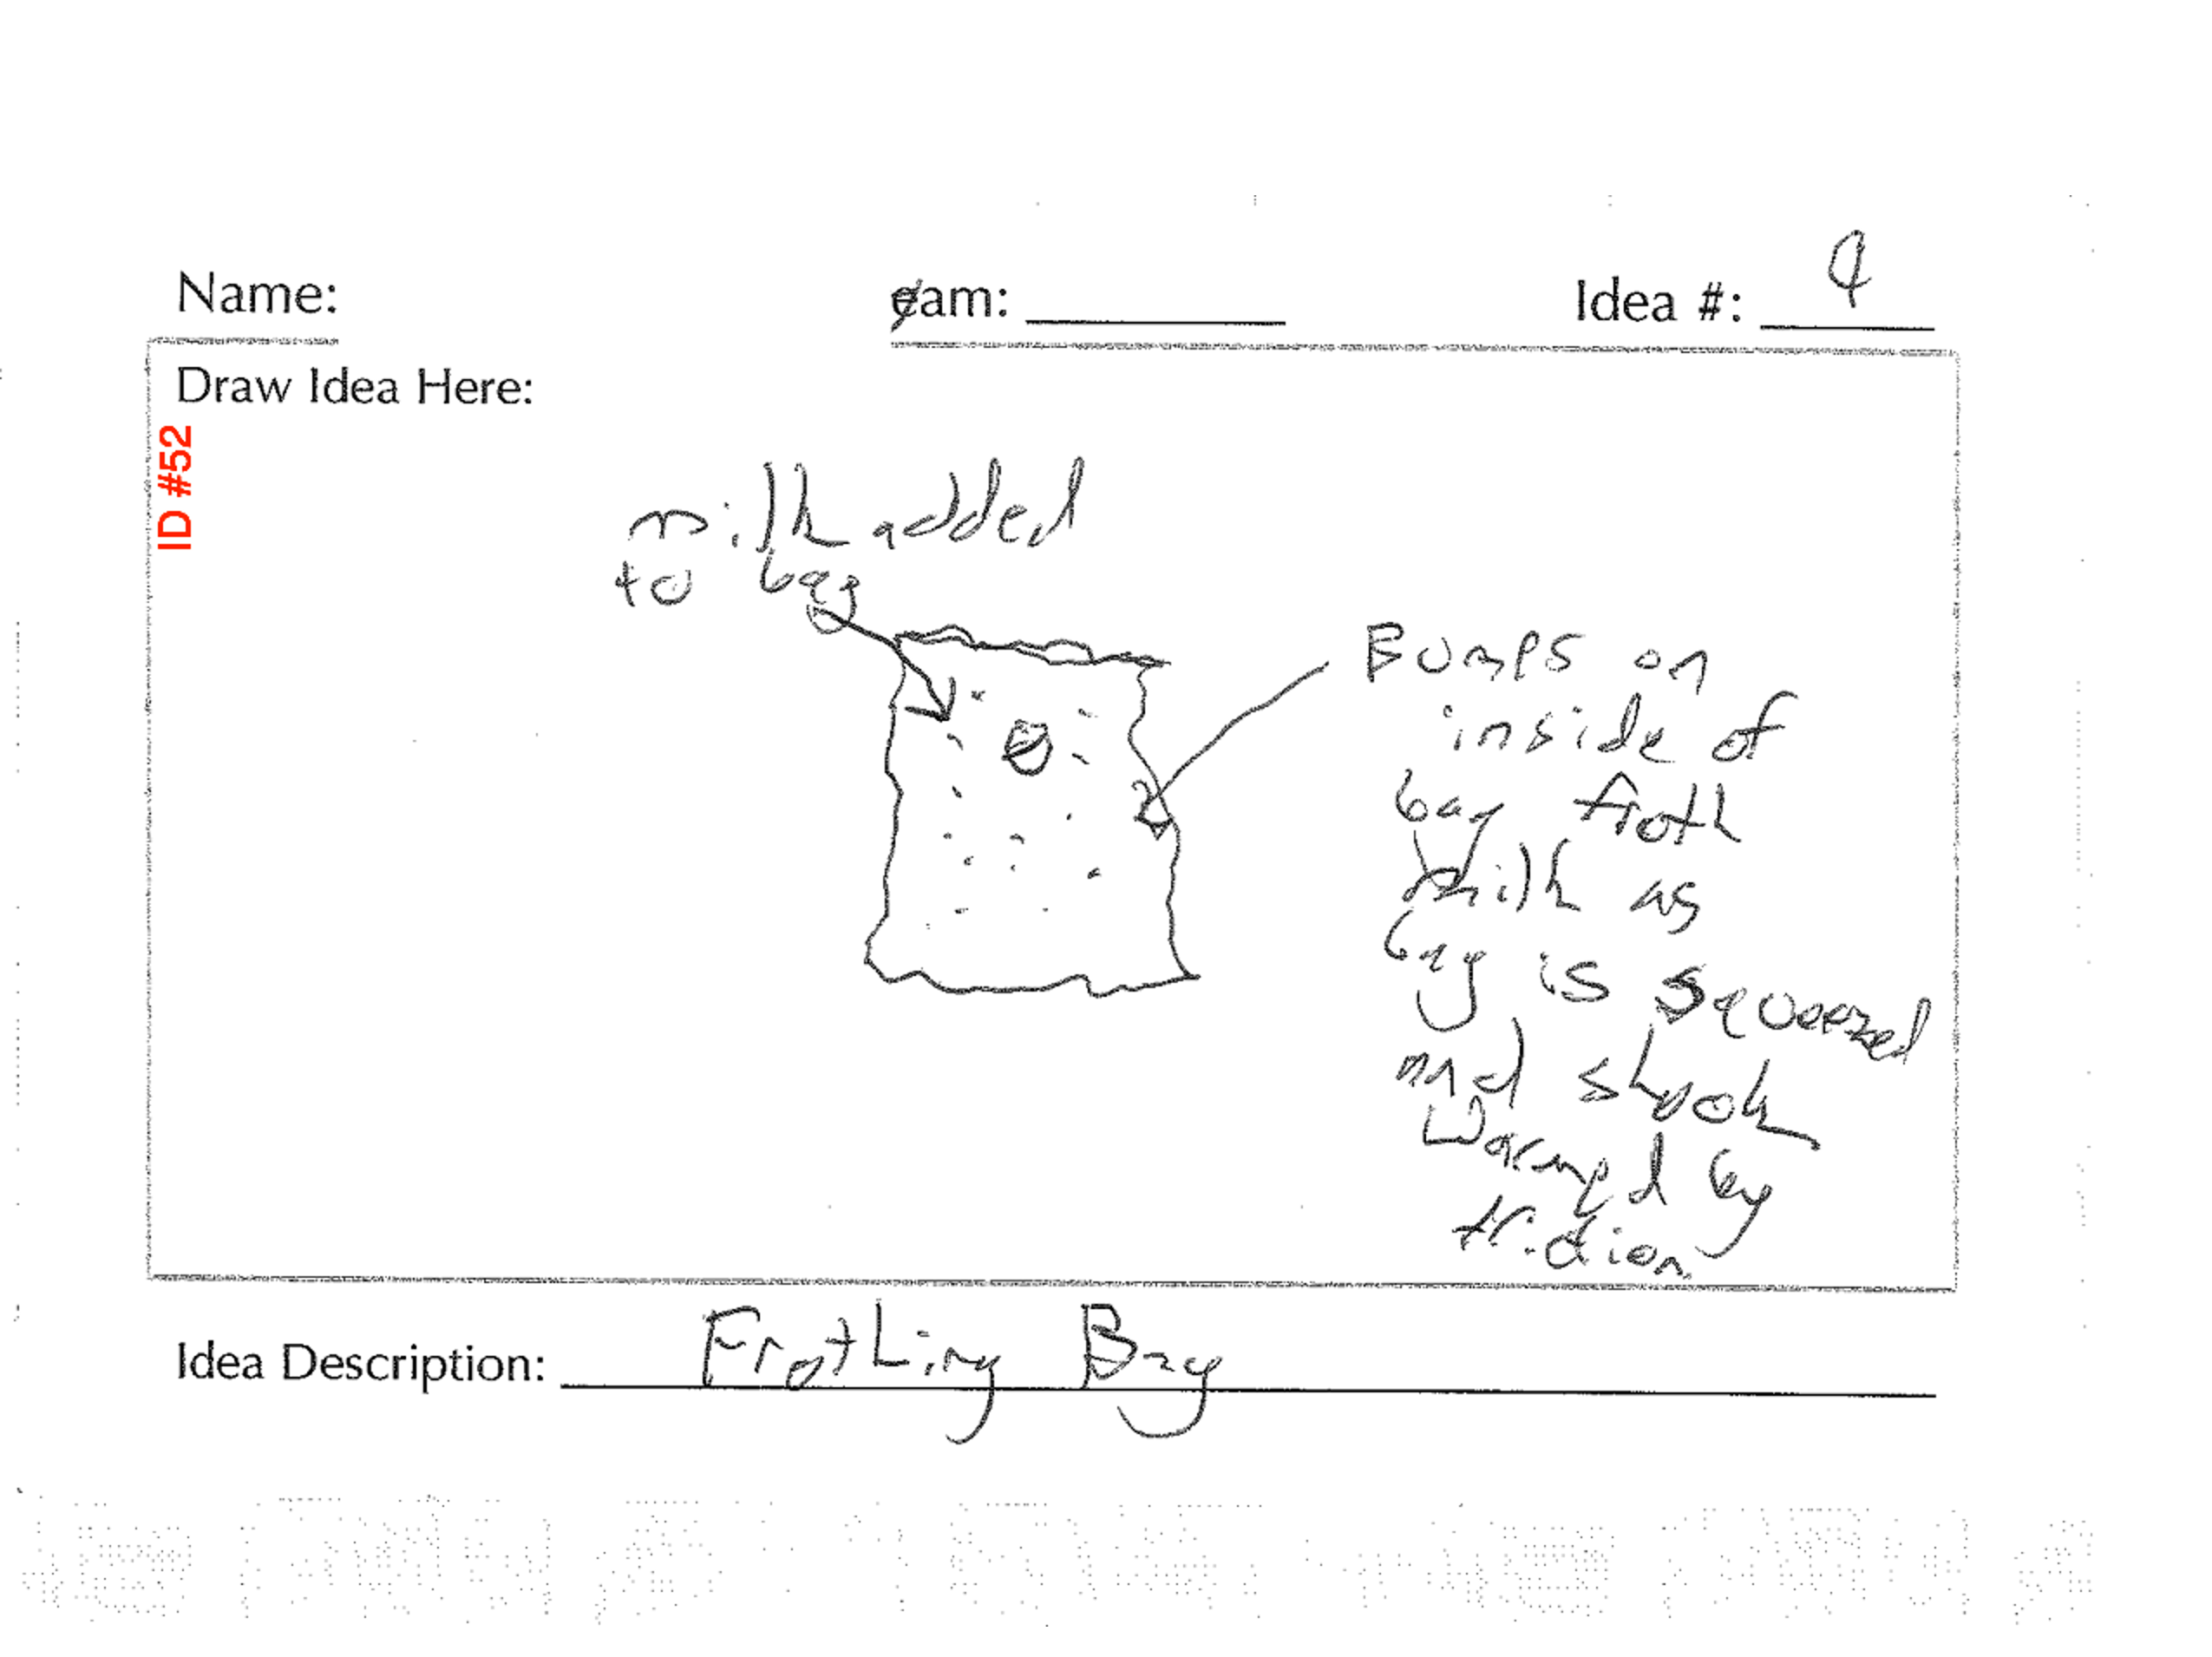 Name:
eam:
Idea #:
Draw Idea Here:
ID #52
milk added
to bag
Bumps on
inside of
bag froth
milk as
bag is squeezed
and shook
Warmed by
friction
Idea Description: Frothing Bag